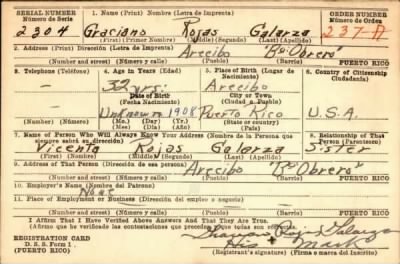 SERIAL NUMBER
Número de Serie
2304
1. Name (Print) Nombre (Letra de Imprenta)
Graciano Rojas Galarza
(First) (Primer Nombre) (Middle) (Segundo) (Last) (Apellido)
ORDER NUMBER
Número de Orden
237-A
2. Address (Print) Dirección (Letra de Imprenta)
Arecibo "Bo Obrero"
(Number and Street) (Número y Calle) (Town) (Pueblo) PUERTO RICO
3. Telephone
(Teléfono)
4. Age in Years (Edad)
32
Date of Birth
(Fecha Nacimiento)
Unknown 1908
(Mo.) (Mes) (Day) (Día) (Yr.) (Año)
5. Place of Birth (Lugar de Nacimiento)
Arecibo
City or Town
(Ciudad o Pueblo)
Puerto Rico
(State or country) (Estado o país)
6. Country of Citizenship
Ciudadanía
U.S.A.
7. Name of Person Who Will Always Know Your Address (Nombre de la Persona que siempre sabrá su dirección)
Vicenta Rojas Galarza
(First) (Primer Nombre) (Middle) (Segundo) (Last) (Apellido)
8. Relationship of That Person (Parentesco)
Sister
9. Address of That Person (Dirección de esa persona)
Arecibo "Bo Obrero"
(Number and Street) (Número y Calle) (Town) (Pueblo) PUERTO RICO
10. Employer's Name (Nombre del Patrono)
None
11. Place of Employment or Business (Dirección del empleo o negocio)
(Number and Street) (Número y Calle) (Town) (Pueblo) PUERTO RICO
I Affirm That I Have Verified Above Answers And That They Are True.
(Afirmo que he verificado las contestaciones que preceden y que todas son correctas)
REGISTRATION CARD
D. S. S. Form 1
(PUERTO RICO)
Rojas Galarza
His Mark
(Registrant's signature) (Firma o marca del inscrito)